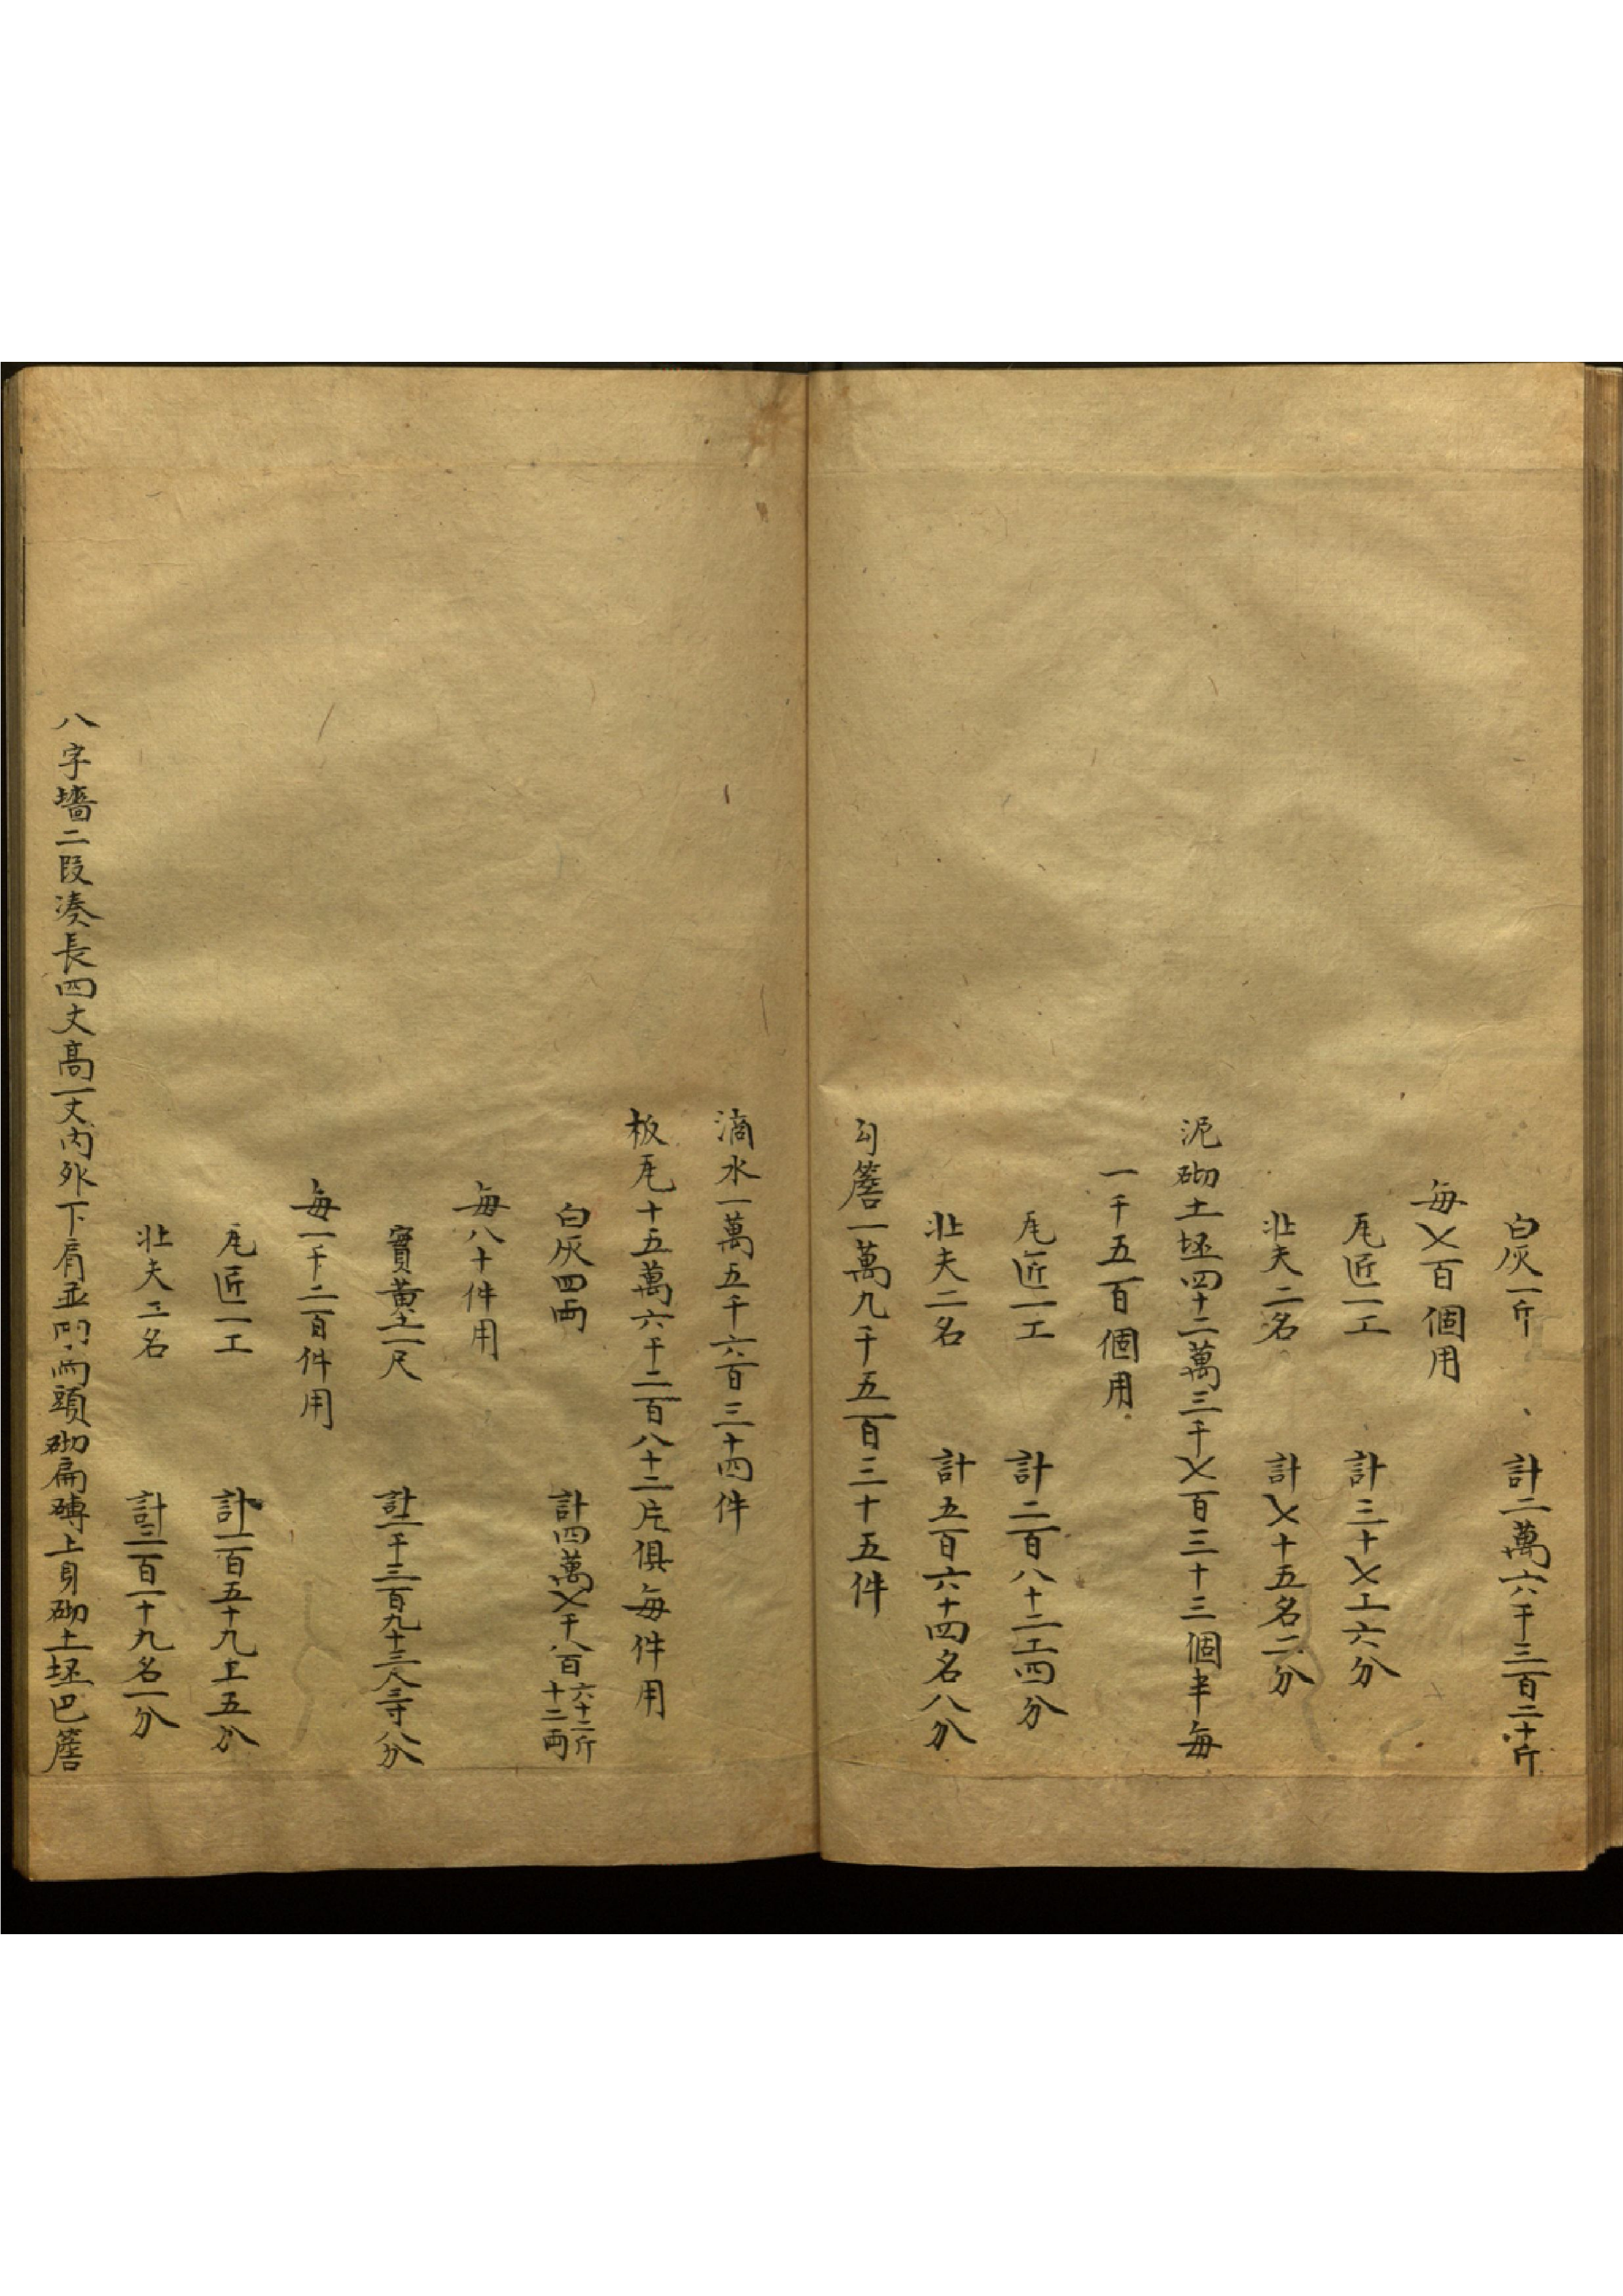 白灰一斤 計二萬六千三百二十斤
每七百個用
瓦匠一工 計三十七工六分
壯夫二名 計七十五名二分
泥砌土坯四十二萬三千七百三十三個半每
一千五百個用
瓦匠一工 計二百八十二工四分
壯夫二名 計五百六十四名八分
勾簷一萬九千五百三十五件
滴水一萬五千六百三十四件
板瓦十五萬六千二百八十二片俱每件用
白灰四兩 計四萬七千八百六十二斤十二兩
每八十件用
實黃土一尺 計二千三百九十三尺一寸八分
每一千二百件用
瓦匠一工 計一百五十九工五分
壯夫二名 計三百一十九名一分
八字墻二段湊長四丈高一丈內外下肩並門兩頭砌扁磚上身砌土坯巴簷